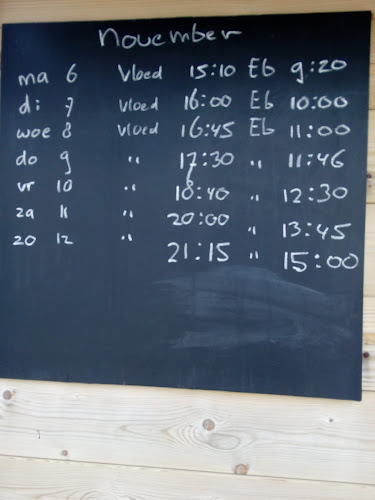 november
ma 6 Vloed 15:10 Eb 9:20
di 7 Vloed 16:00 Eb 10:00
woe 8 Vloed 16:45 Eb 11:00
do 9 " 17:30 " 11:46
vr 10 " 18:40 " 12:30
za 11 " 20:00 " 13:45
zo 12 " 21:15 " 15:00